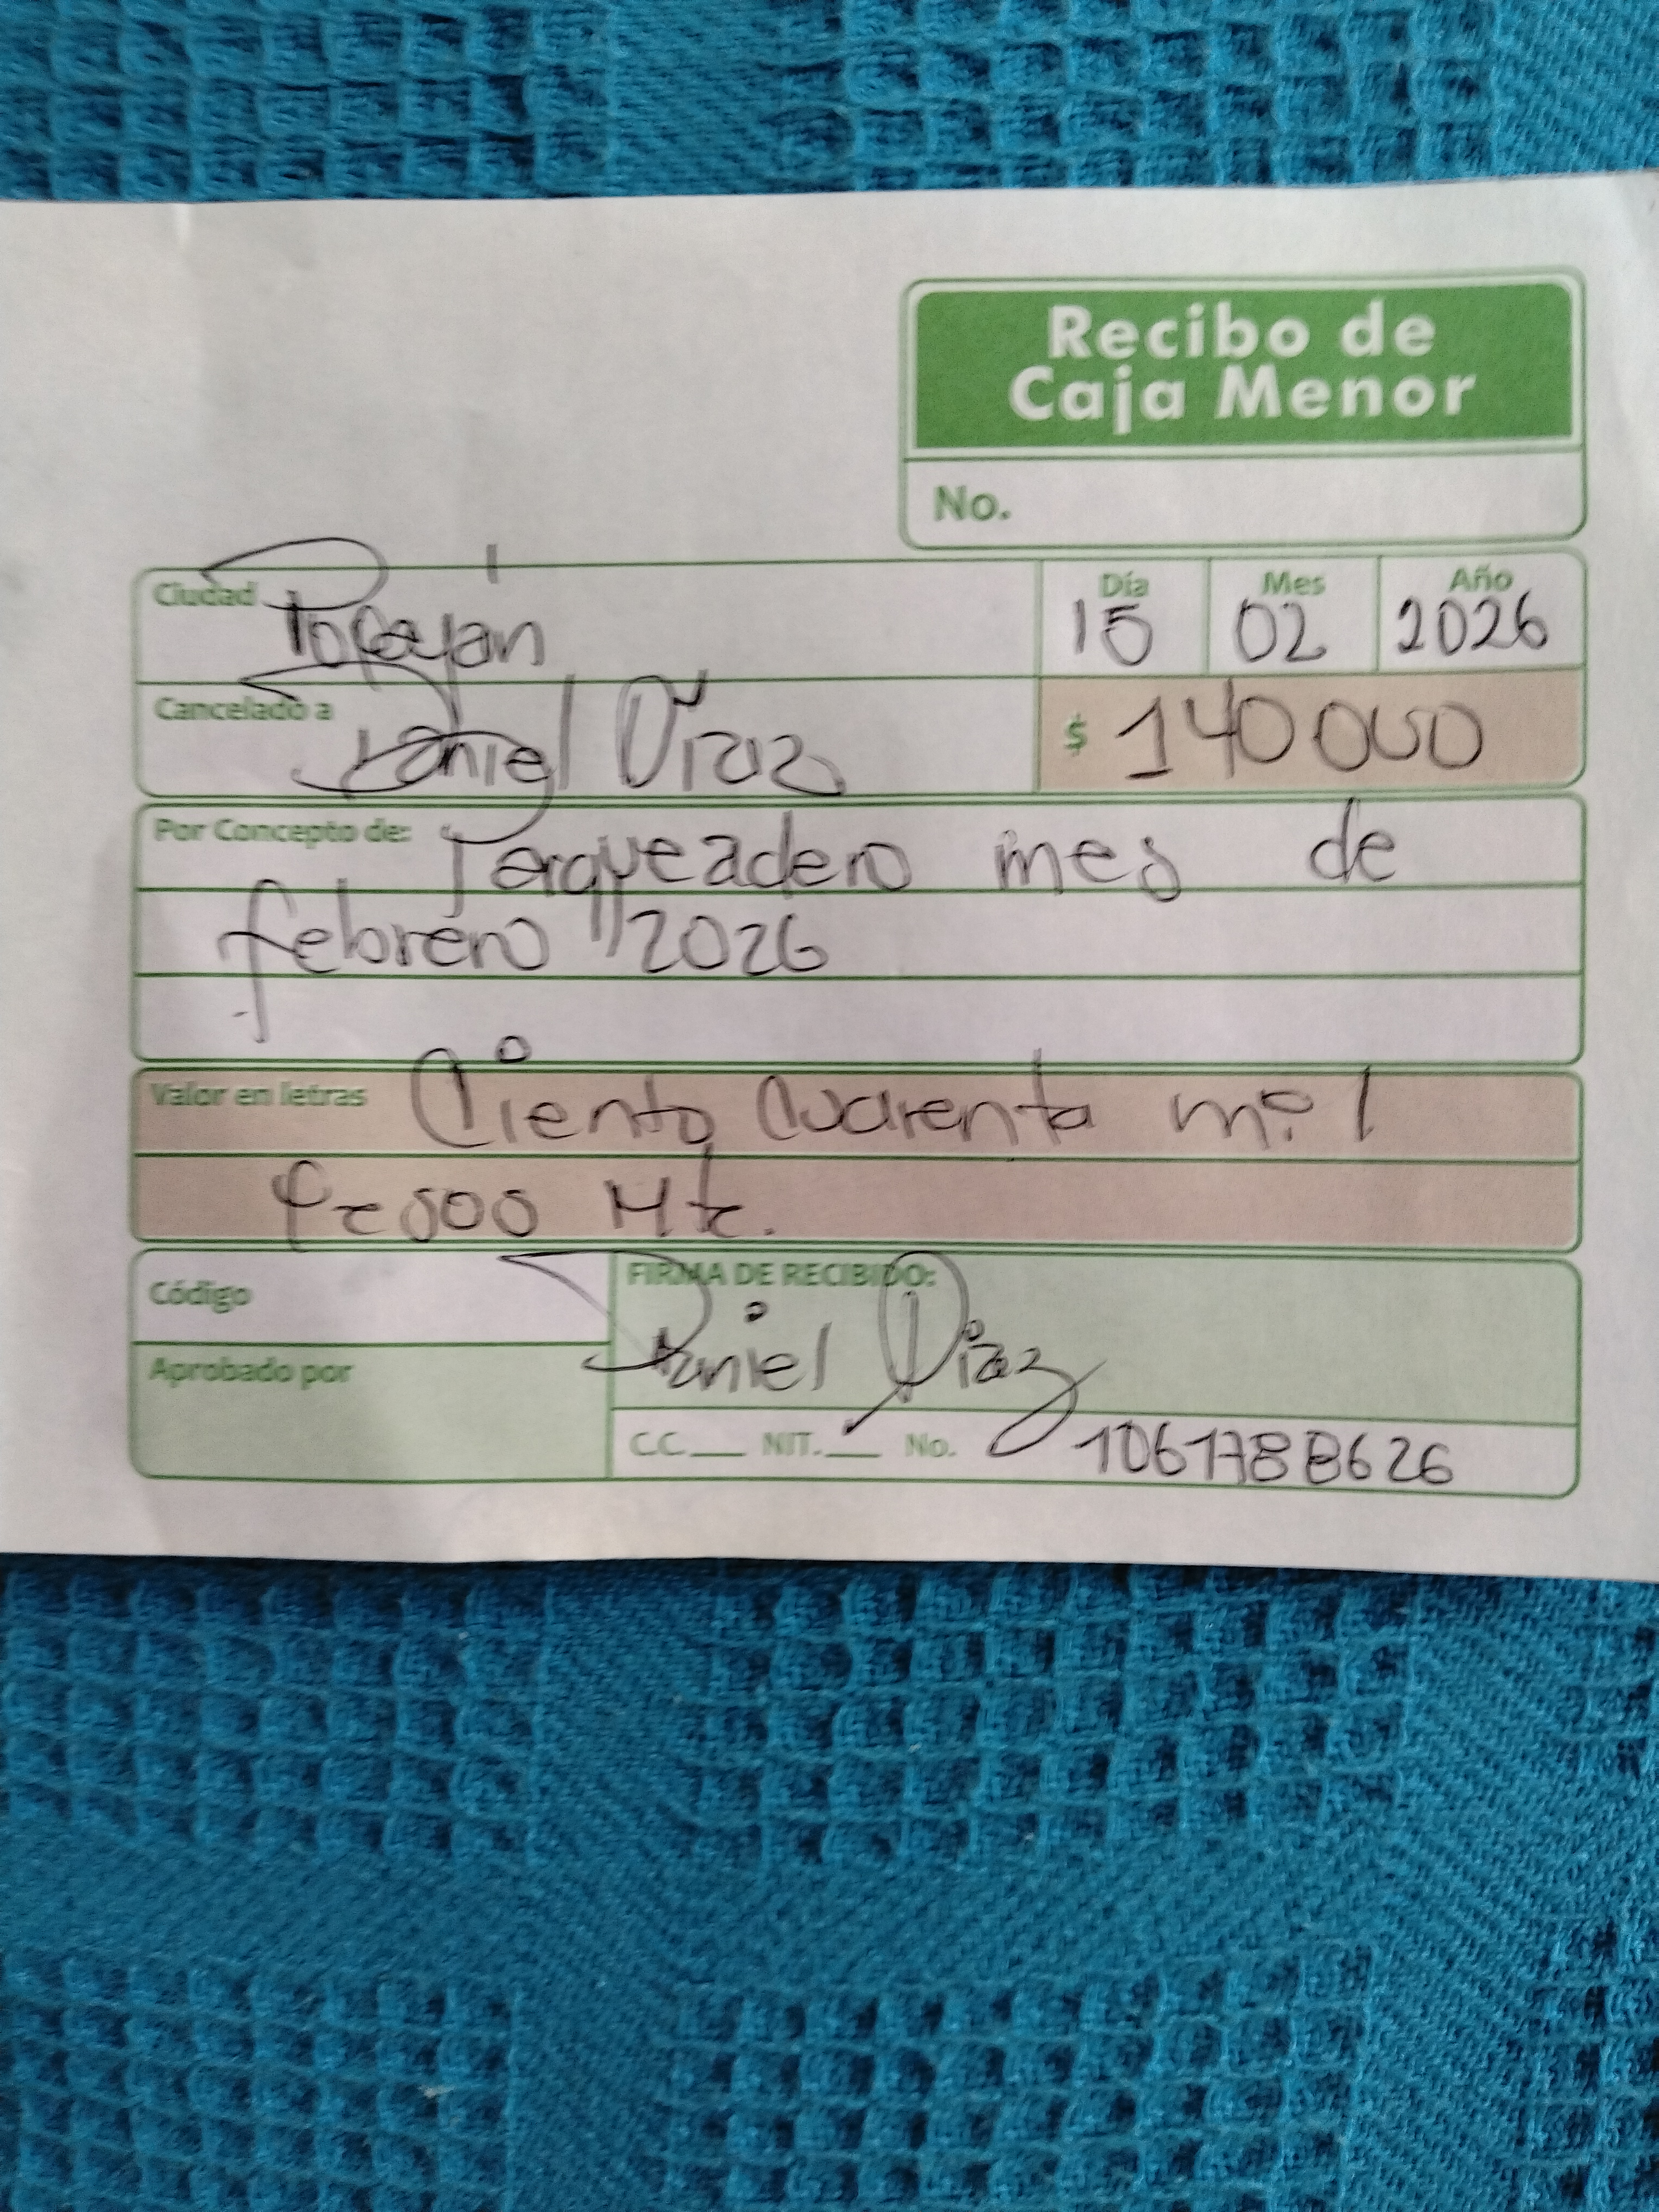 Recibo de
Caja Menor
No.
Ciudad Popayán
Día 15 Mes 02 Año 2026
Cancelado a Daniel Díaz
$ 140000
Por Concepto de: Parqueadero mes de
febrero /2026
Valor en letras Ciento cuarenta mil
Pesos Mte.
Código
FIRMA DE RECIBIDO:
Daniel Díaz
Aprobado por
C.C. NIT. No. 1061788626